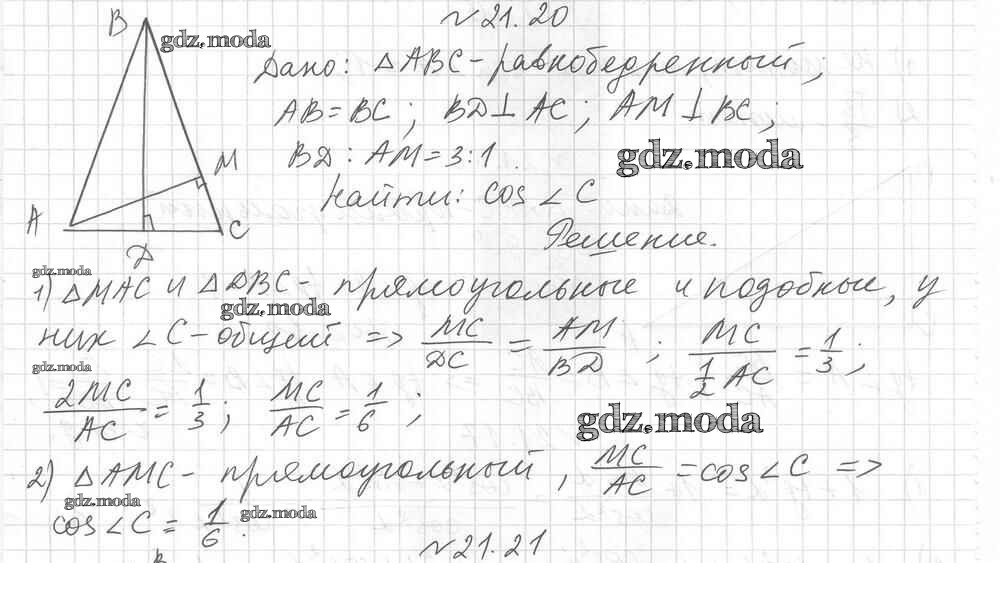 № 21.20
B
gdz.moda
Дано: △ABC - равнобедренный,
AB = BC; BD ⊥ AC; AM ⊥ BC;
gdz.moda
M
BD : AM = 3:1.
Найти: cos ∠C
A
C
D
Решение.
gdz.moda
1) △MAC и △DBC - прямоугольные и подобные, у
gdz.moda
них ∠C - общий => MC/DC = AM/BD ; MC/(1/2 AC) = 1/3 ;
gdz.moda
2MC/AC = 1/3 ; MC/AC = 1/6 ;
gdz.moda
2) △AMC - прямоугольный, MC/AC = cos ∠C =>
gdz.moda
cos ∠C = 1/6 .
gdz.moda
№ 21.21
B